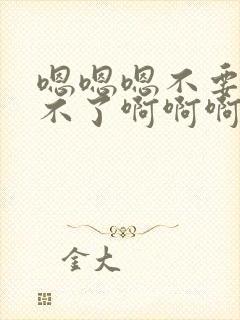 嗯嗯嗯不要
不了啊啊啊
金大